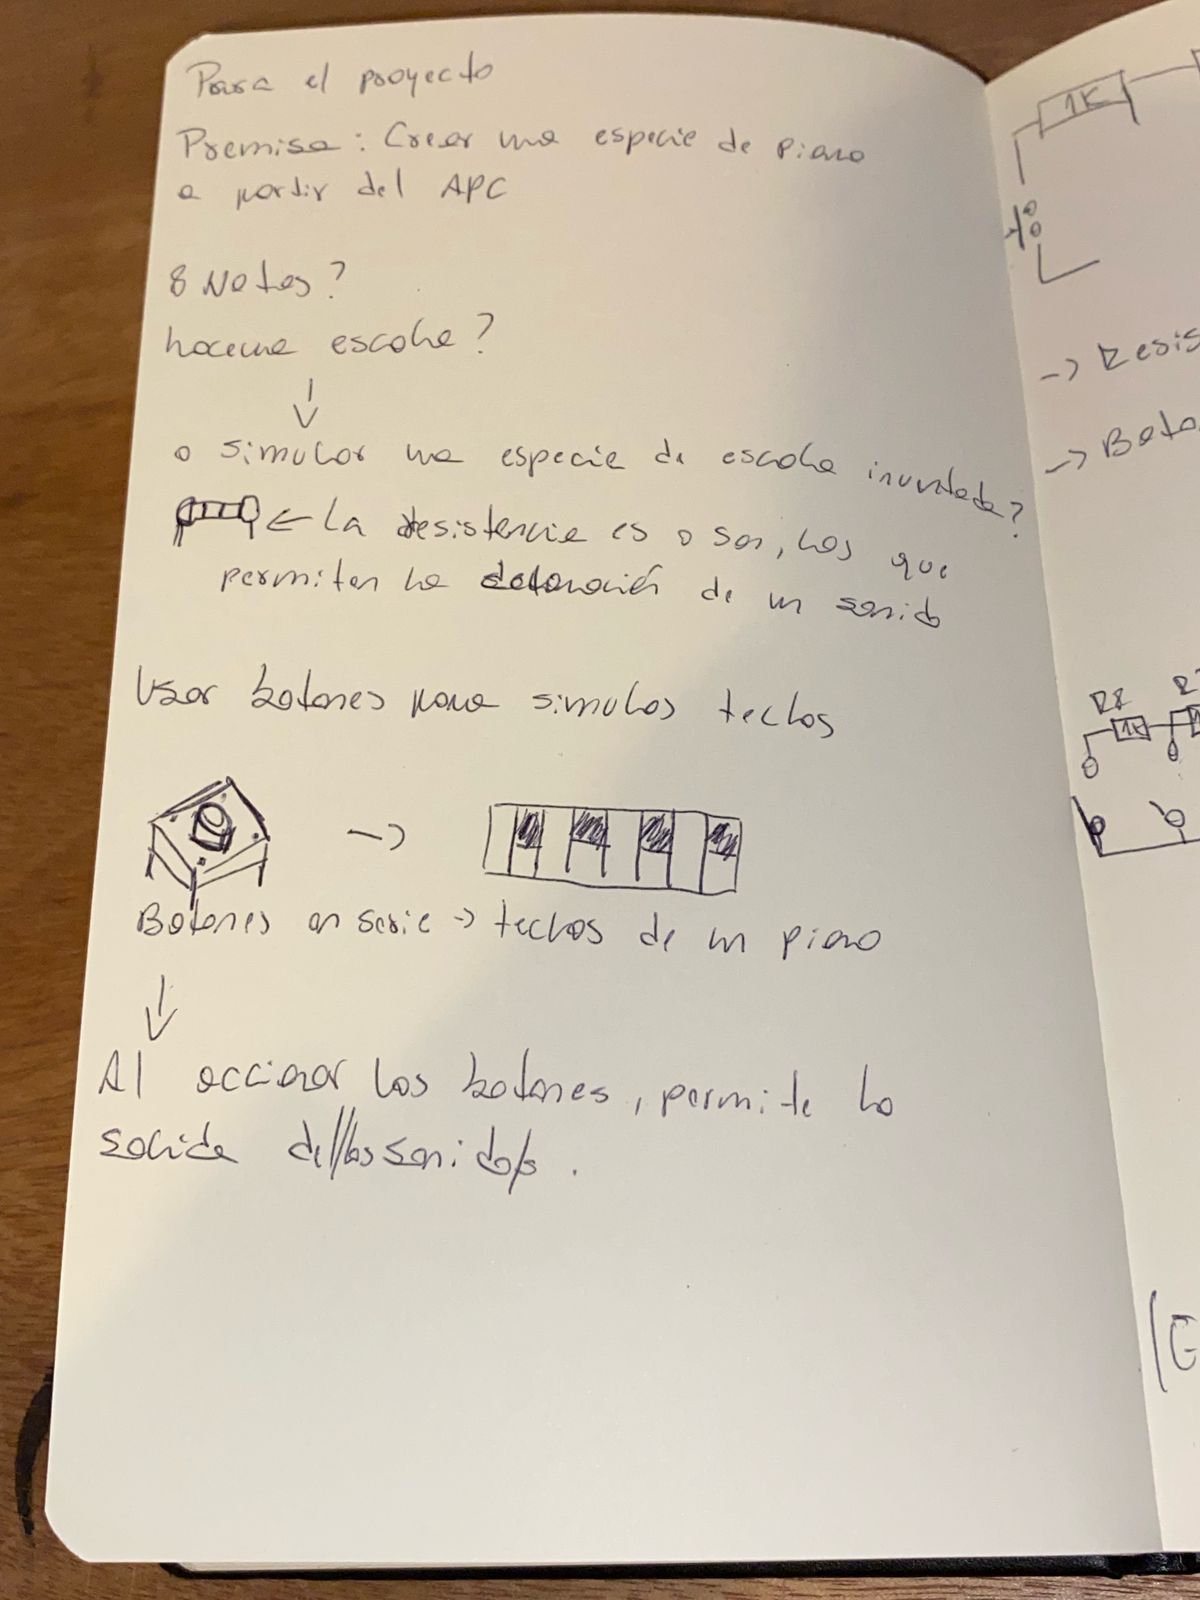 Para el proyecto
Premisa: Crear una especie de piano
a partir del APC
8 Notas?
hacerme escala?
o simular una especie de escala inventada?
← La resistencia es o son, las que
permiten la detonación de un sonido
Usar botones para simular teclas
→
Botones en serie → teclas de un piano
Al accionar los botones, permite la
salida del/los sonido/s.
1K
→ Resis
→ Boto
R8
1K